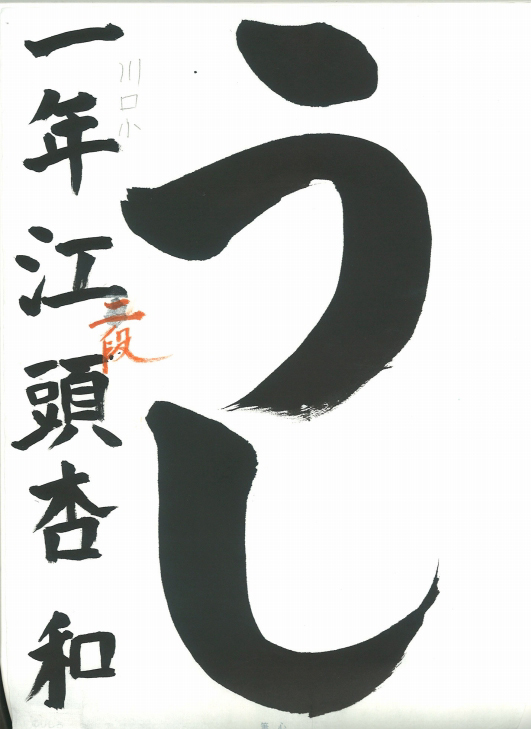 うし
川口小
一年江頭杏和
二段